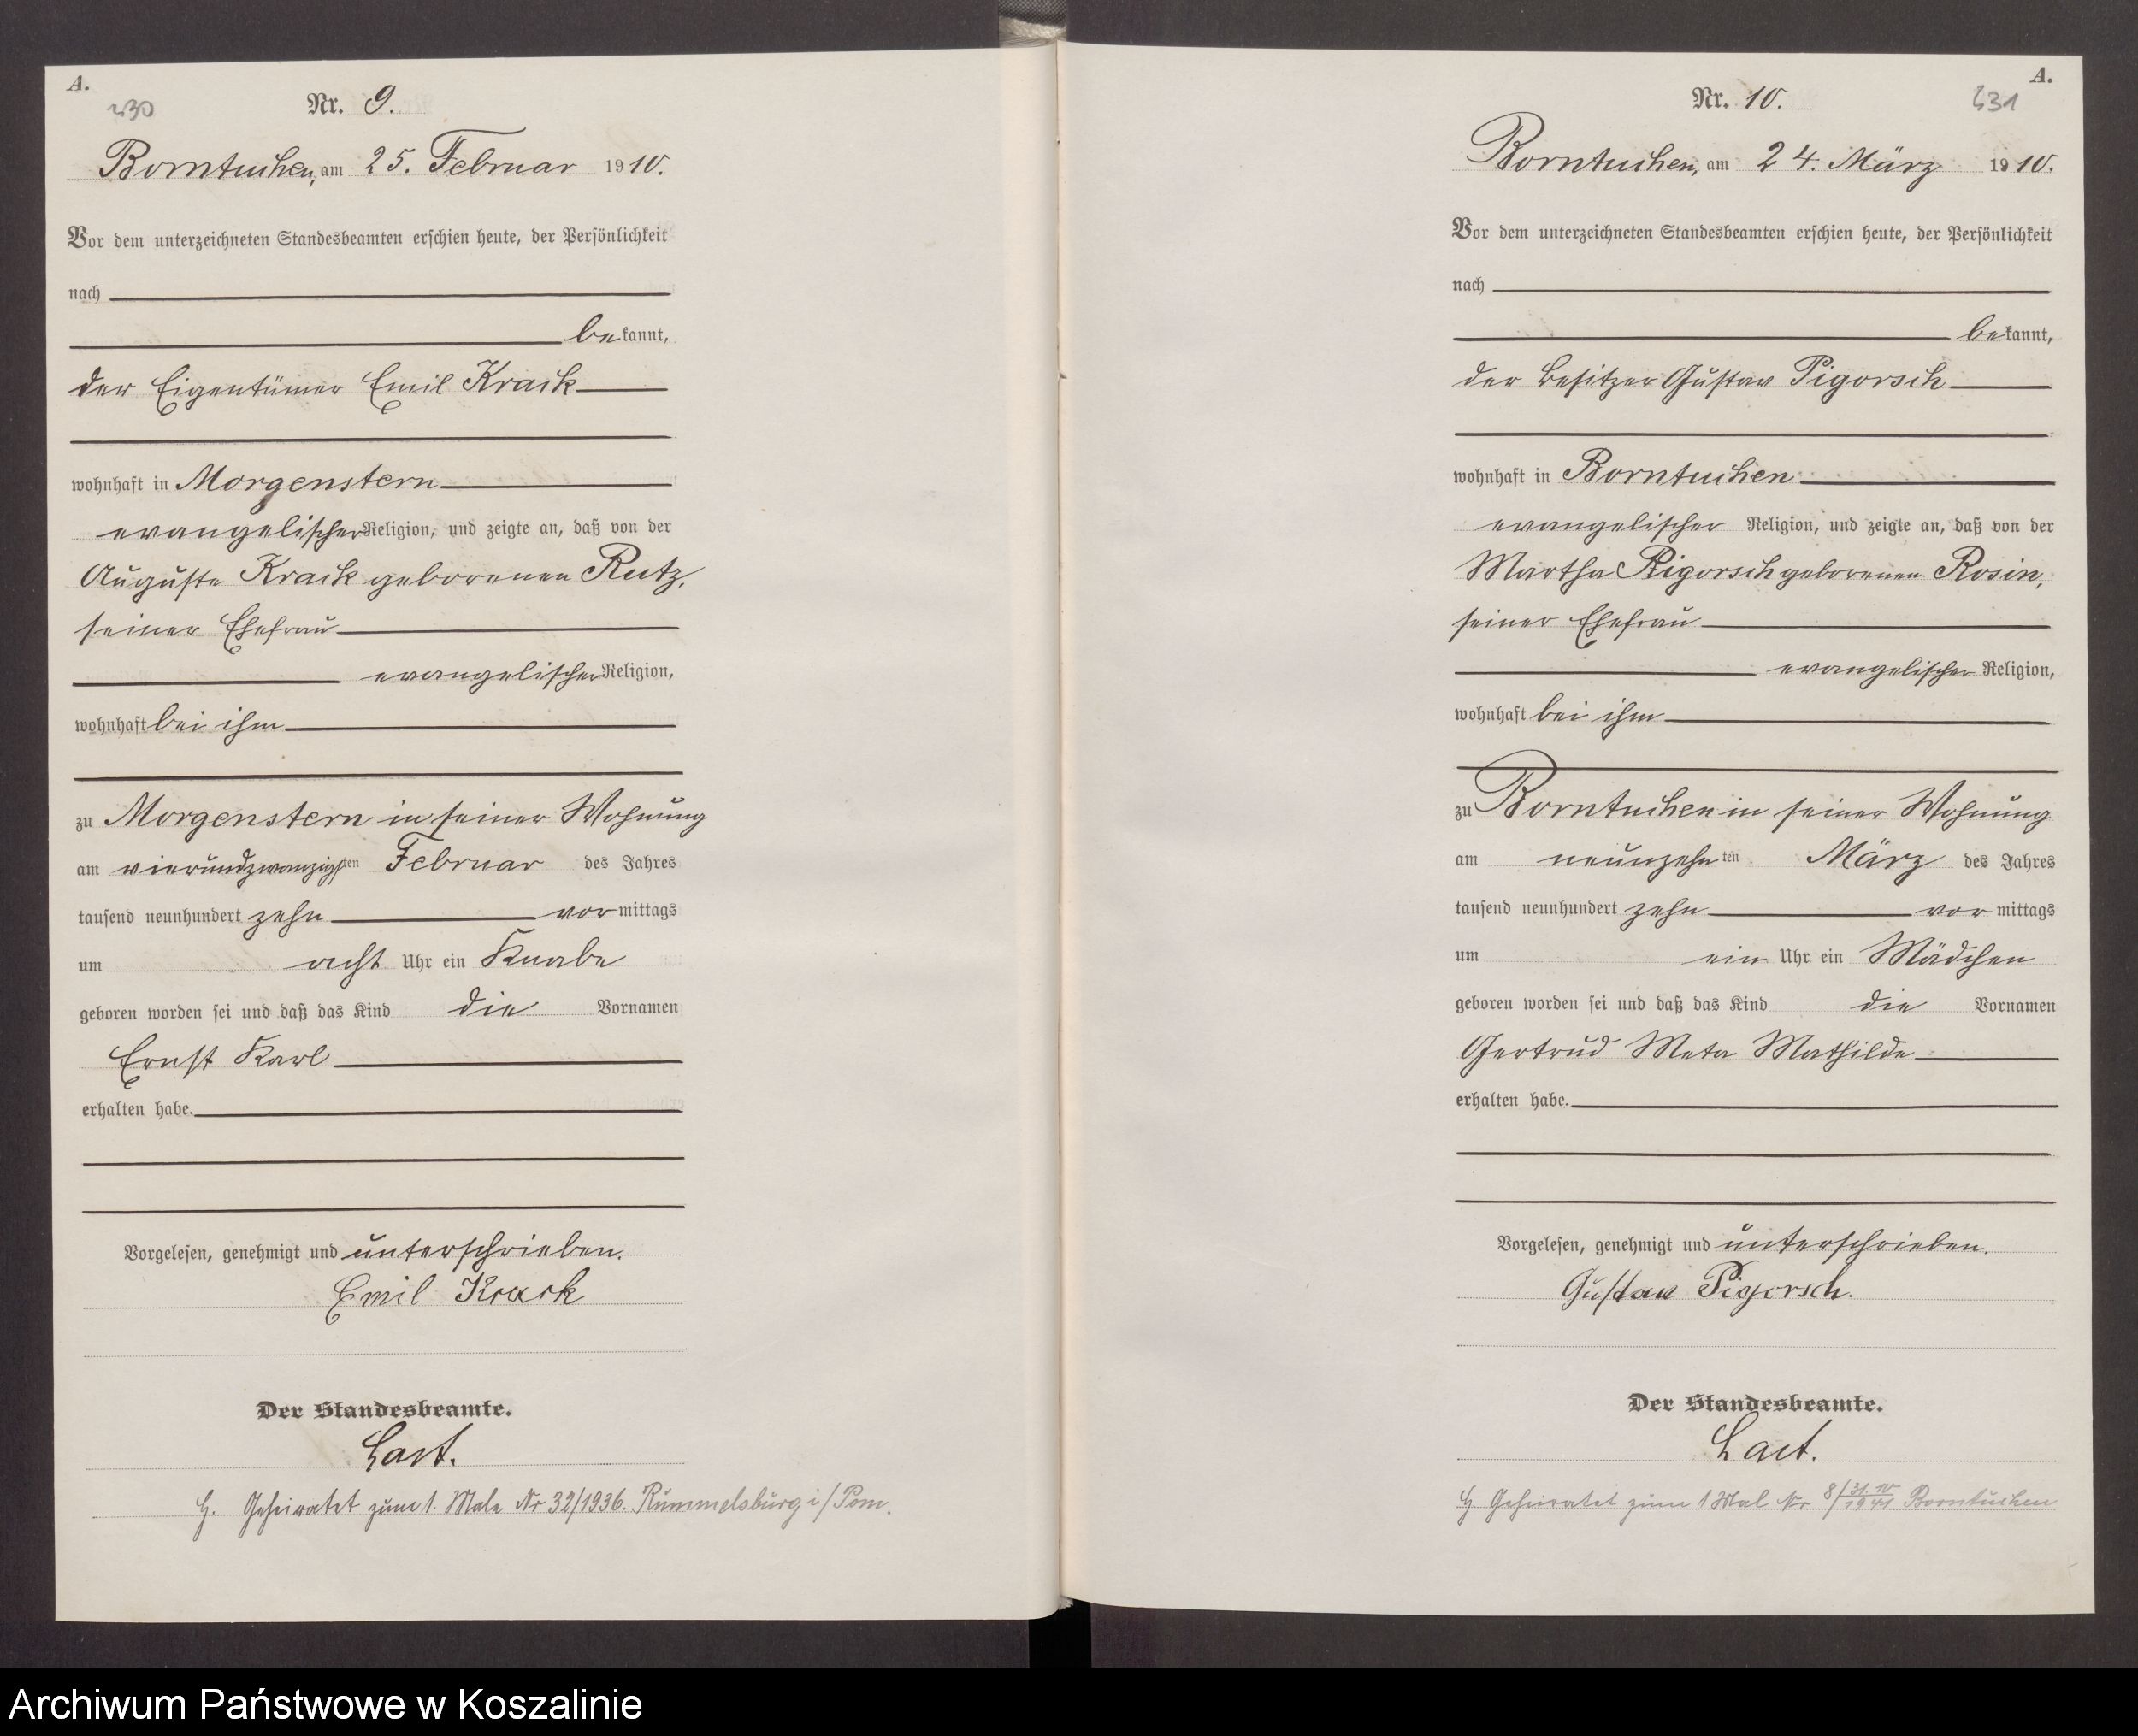 A.
430
Nr. 9.
Borntuchen, am 25. Februar 1910.
Vor dem unterzeichneten Standesbeamten erschien heute, der Persönlichkeit
nach
bekannt,
der Eigentümer Emil Krack
wohnhaft in Morgenstern
evangelischer Religion, und zeigte an, daß von der
Auguste Krack geborenen Rutz,
seiner Ehefrau
evangelischer Religion,
wohnhaft bei ihm
zu Morgenstern in seiner Wohnung
am vierundzwanzigsten Februar des Jahres
tausend neunhundert zehn vormittags
um acht Uhr ein Knabe
geboren worden sei und daß das Kind die Vornamen
Ernst Karl
erhalten habe.
Vorgelesen, genehmigt und unterschrieben.
Emil Krack
Der Standesbeamte.
Last.
H. Geheiratet zum 1. Male Nr 32/1936. Rummelsburg i/Pom.
A.
431
Nr. 10.
Borntuchen, am 24. März 1910.
Vor dem unterzeichneten Standesbeamten erschien heute, der Persönlichkeit
nach
bekannt,
der Besitzer Gustav Pigorsch
wohnhaft in Borntuchen
evangelischer Religion, und zeigte an, daß von der
Martha Pigorsch geborenen Rosin,
seiner Ehefrau
evangelischer Religion,
wohnhaft bei ihm
zu Borntuchen in seiner Wohnung
am neunzehnten März des Jahres
tausend neunhundert zehn vormittags
um ein Uhr ein Mädchen
geboren worden sei und daß das Kind die Vornamen
Gertrud Meta Mathilde
erhalten habe.
Vorgelesen, genehmigt und unterschrieben.
Gustav Pigorsch.
Der Standesbeamte.
Last.
H. Geheiratet zum 1 Mal Nr 8/31.10 1941 Borntuchen
Archiwum Państwowe w Koszalinie